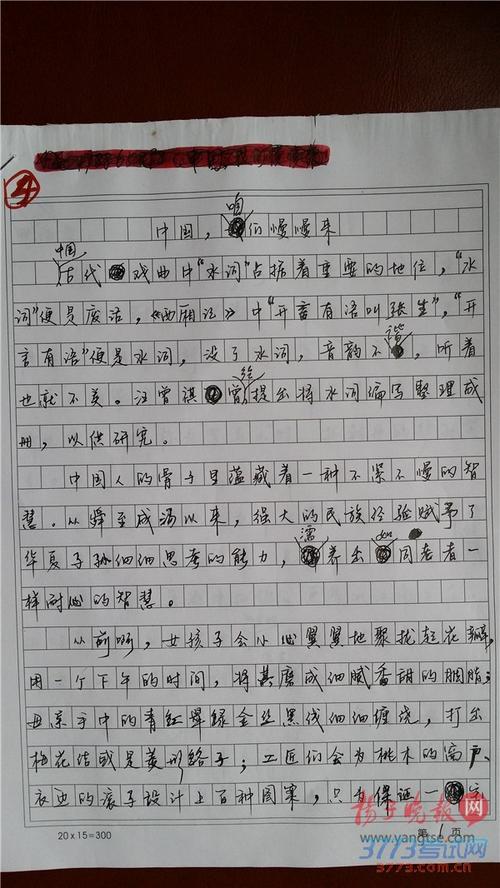 4
中国，咱们慢慢来
中国古代戏曲中“水词”占据着重要的地位，“水
词”便是废话，《西厢记》中“开言有语叫张生”，“开
言有语”便是水词，没了水词，音韵不谐，听着
也就不美。汪曾祺曾经提出将水词编写整理成
册，以供研究。
中国人的骨子里蕴藏着一种不紧不慢的智
慧。从舜至成汤以来，强大的民族经验赋予了
华夏子孙细细思考的能力，濡养出如同老者一
样耐心的智慧。
从前啊，女孩子会小心翼翼地聚拢起花瓣，
用一个下午的时间，将其磨成细腻香甜的胭脂；
母亲手中的青红翠绿金丝黑线细细缠绕，打出
梅花结或是菱形络子；工匠们会为桃木的窗户
衣边的滚子设计上百种图案，只为保证一
20×15=300
第1页
扬子晚报网
www.yangtse.com
3773考试网
3773.com.cn